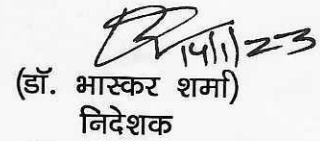 14/1/23
(डॉ. भास्कर शर्मा)
निदेशक